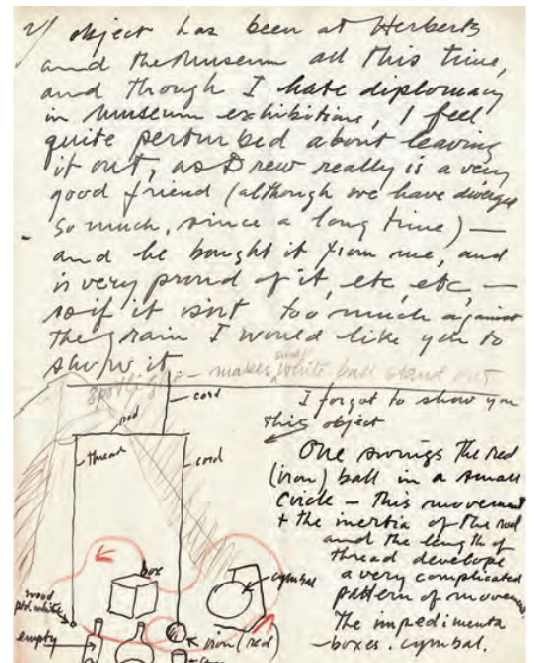 2/ object has been at Herberts
and the Museum all this time,
and though I hate diplomacy
in Museum exhibitions, I feel
quite perturbed about leaving
it out, as Drew really is a very
good friend (although we have diverged
so much, since a long time) —
and he bought it from me, and
is very proud of it, etc, etc, —
so if it isnt too much against
the grain I would like you to
show it
spotlight — makes small white ball stand out
cord
rod
thread
cord
I forgot to show you
this object
One swings the red
(iron) ball in a small
circle — this movement
+ the inertia of the rod
and the length of
thread develops
a very complicated
pattern of movement.
The impedimenta
— boxes, cymbal,
box
cymbal
wood
ptd. white
empty
iron (red)